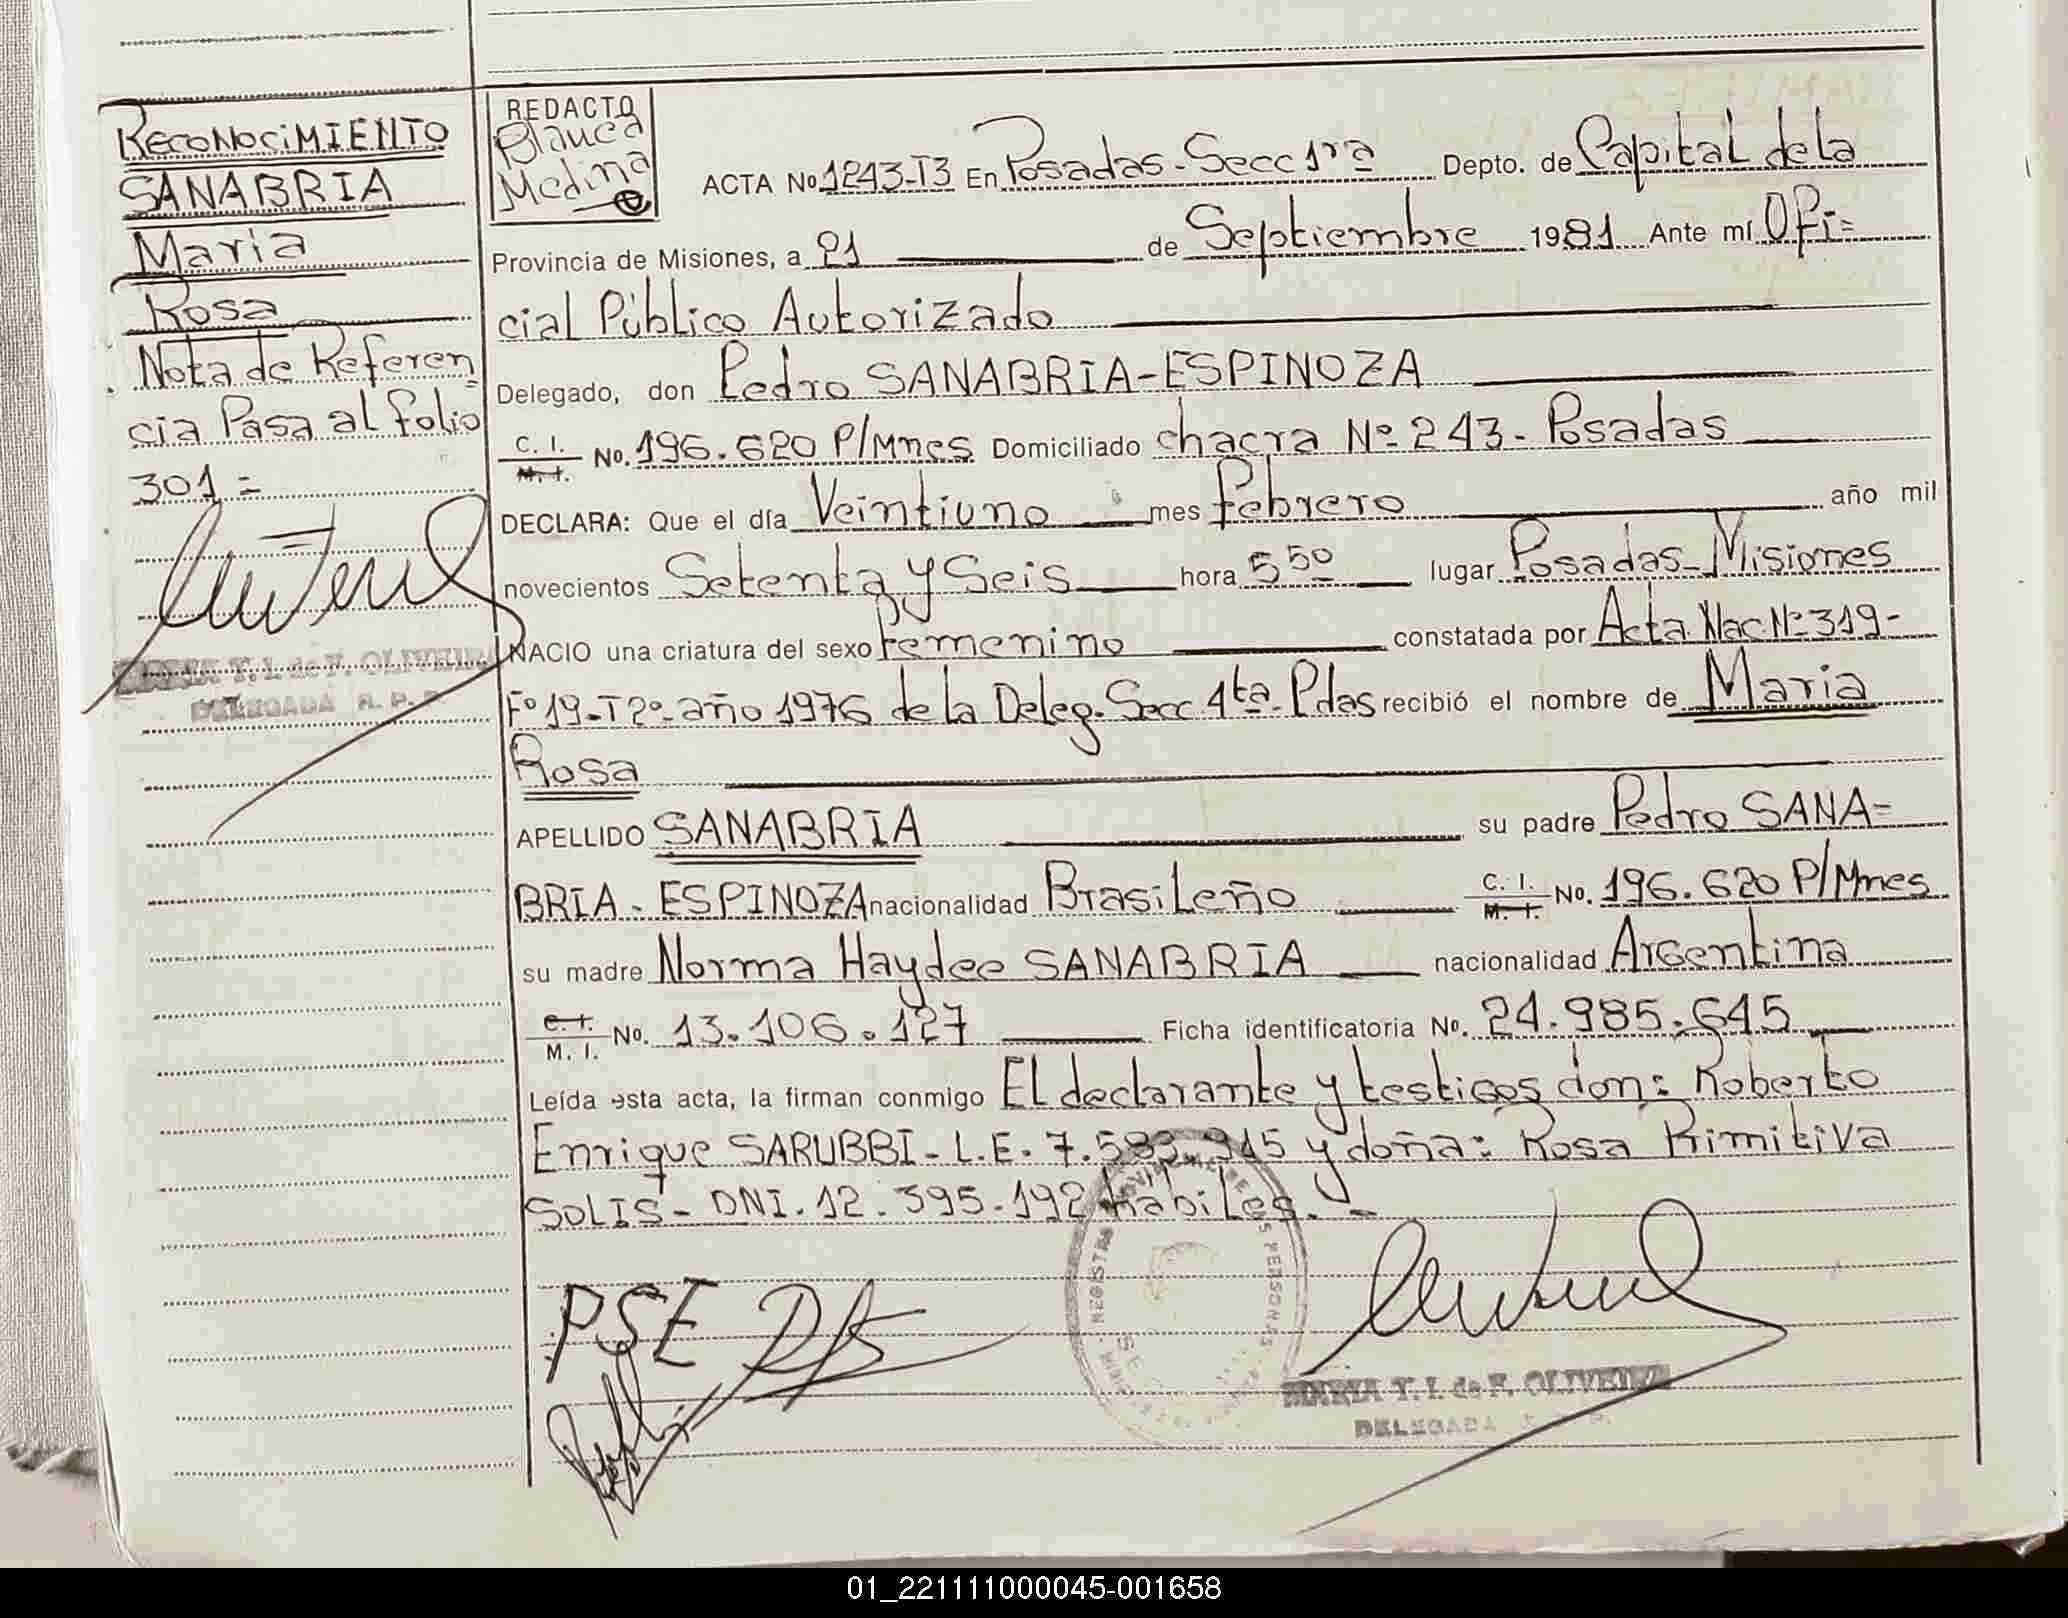 RECONOCIMIENTO
SANABRIA
Maria
Rosa
Nota de Referen=
cia Pasa al folio
301=
MARIA T. I. de F. OLIVEIRA
DELEGADA R. P. P.
REDACTO
Blanca
Medina
ACTA No 1243-T3 En Posadas-Secc 1ra Depto. de Capital de la
Provincia de Misiones, a 21 de Septiembre 1981 Ante mí Ofi=
cial Público Autorizado
Delegado, don Pedro SANABRIA-ESPINOZA
C. I. M. I. No. 196.620 P/Mnes Domiciliado chacra Nº 243- Posadas
DECLARA: Que el día Veintiuno mes Febrero año mil
novecientos Setenta y Seis hora 5 50 lugar Posadas-Misiones
NACIO una criatura del sexo Femenino constatada por Acta Nac Nº 319-
Fº 19-T2º-año 1976 de la Deleg. Secc 4ta. Pdas recibió el nombre de Maria
Rosa
APELLIDO SANABRIA su padre Pedro SANA=
BRIA - ESPINOZA nacionalidad Brasileño C. I. M. I. No. 196.620 P/Mnes
su madre Norma Haydee SANABRIA nacionalidad Argentina
C. I. M. I. No. 13.106.127 Ficha identificatoria No. 24.985.645
Leída esta acta, la firman conmigo El declarante y testigos don: Roberto
Enrique SARUBBI- L.E. 7.583.915 y doña: Rosa Primitiva
SOLIS- DNI. 12.395.192 habiles.-
PSE
MARIA T. I. de F. OLIVEIRA
DELEGADA
01_221111000045-001658